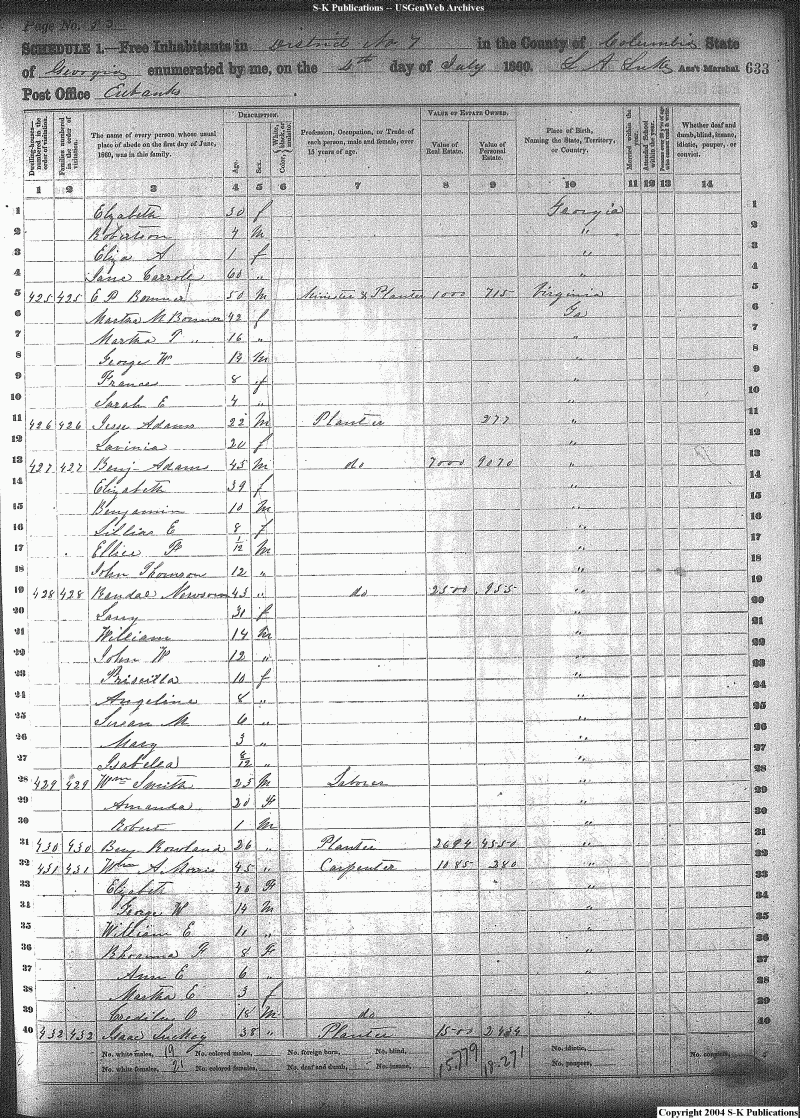 S-K Publications -- USGenWeb Archives
Page No.
SCHEDULE 1.—Free Inhabitants in District No 7 in the County of Columbia State
of Georgia enumerated by me, on the 4th day of July 1860. Ass't Marshal 633
Post Office Eubanks
Dwelling-houses numbered in the order of visitation. Families numbered in the order of visitation. The name of every person whose usual place of abode on the first day of June, 1860, was in this family. DESCRIPTION. Age. Sex. Color, White, black, or mulatto. Profession, Occupation, or Trade of each person, male and female, over 15 years of age. VALUE OF ESTATE OWNED. Value of Real Estate. Value of Personal Estate. Place of Birth, Naming the State, Territory, or Country. Married within the year. Attended School within the year. Whether deaf and dumb, blind, insane, idiotic, pauper, or convict.
1 2 3 4 5 6 7 8 9 10 11 12 13 14
1 Elizabeth 30 f Georgia 1
2 Robertson 4 M " 2
3 Eliza A 1 f " 3
4 Jane Carroll 60 " " 4
5 425 425 E P Bonner 50 M Minister & Planter 1000 715 Virginia 5
6 Martha M Bonner 42 f Ga 6
7 Martha T " 16 " " 7
8 George W M " 8
9 Frances 8 f " 9
10 Sarah E 4 " " 10
11 426 426 Jesse Adams 22 M Planter 277 " 11
12 Lavinia 20 f " 12
13 427 427 Benj Adams 45 M do 7000 9070 " 13
14 Elizabeth 39 f " 14
15 Benjamin 10 M " 15
16 Lillias E 8 f " 16
17 F 1/12 M " 17
18 John Thomson 12 " " 18
19 428 428 Randal Newsom 43 " do 2500 955 " 19
20 31 f " 20
21 William 14 M " 21
22 John W 12 " " 22
23 Priscilla 10 f " 23
24 Angeline 8 " " 24
25 Susan M 6 " " 25
26 Mary 3 " " 26
27 Isabella 8/12 " " 27
28 429 429 Wm Smith 25 M Laborer " 28
29 Amanda 20 F " 29
30 Robert 1 M " 30
31 430 430 Benj Rowland 26 " Planter 2694 4550 " 31
32 431 431 Wm A Morris 45 " Carpenter 1085 280 " 32
33 Elizabeth 46 F " 33
34 George W 14 M " 34
35 William E 11 " " 35
36 Rhoanna F 8 F " 36
37 Ann E 6 " " 37
38 Martha E 3 f " 38
39 O 18 M do " 39
40 432 432 Isaac Luckey 38 " Planter 1500 2464 " 40
No. white males, 19 No. colored males, No. foreign born, No. blind, 15,779 18,271 No. idiotic, No. convicts,
No. white females, 21 No. colored females, No. deaf and dumb, No. insane, No. paupers,
Copyright 2004 S-K Publications